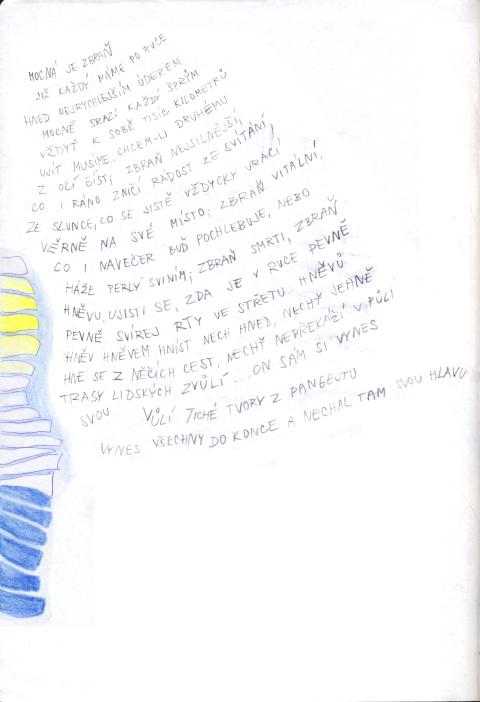 MOCNÁ JE ZBRAŇ
JIŽ KAŽDÝ MÁME PO RUCE
HNED NEJRYCHLEJŠÍM ÚDEREM
MOCNĚ SRAZÍ KAŽDÝ ŠPRÝM
VŽDYŤ K SOBĚ TISÍC KILOMETRŮ
UJÍT MUSÍME. CHCEM-LI DRUHÉMU
Z OČÍ ČÍST; ZBRAŇ NEJSILNĚJŠÍ,
CO I RÁNO ZNIČÍ RADOST ZE SVÍTÁNÍ,
ZE SLUNCE, CO SE JISTĚ VŽDYCKY VRACÍ
VĚRNĚ NA SVÉ MÍSTO; ZBRAŇ VITÁLNÍ.
CO I NAVEČER BUĎ POCHLEBUJE, NEBO
HÁŽE PERLY SVINÍM; ZBRAŇ SMRTI, ZBRAŇ
HNĚVU, UJISTI SE, ZDA JE V RUCE PEVNĚ
PEVNĚ SVÍREJ RTY VE STŘETU HNĚVŮ
HNĚV HNĚVEM HNÍST NECH HNED, NECHŤ JEHNĚ
HNE SE Z NĚČÍCH CEST, NECHŤ NEPŘEKÁŽÍ V PŮLI
TRASY LIDSKÝCH ZVŮLÍ... ON SÁM SI VYNES
SVOU VŮLÍ TICHÉ TVORY Z PANGEJTU
VYNES VŠECHNY DO KONCE A NECHAL TAM SVOU HLAVU